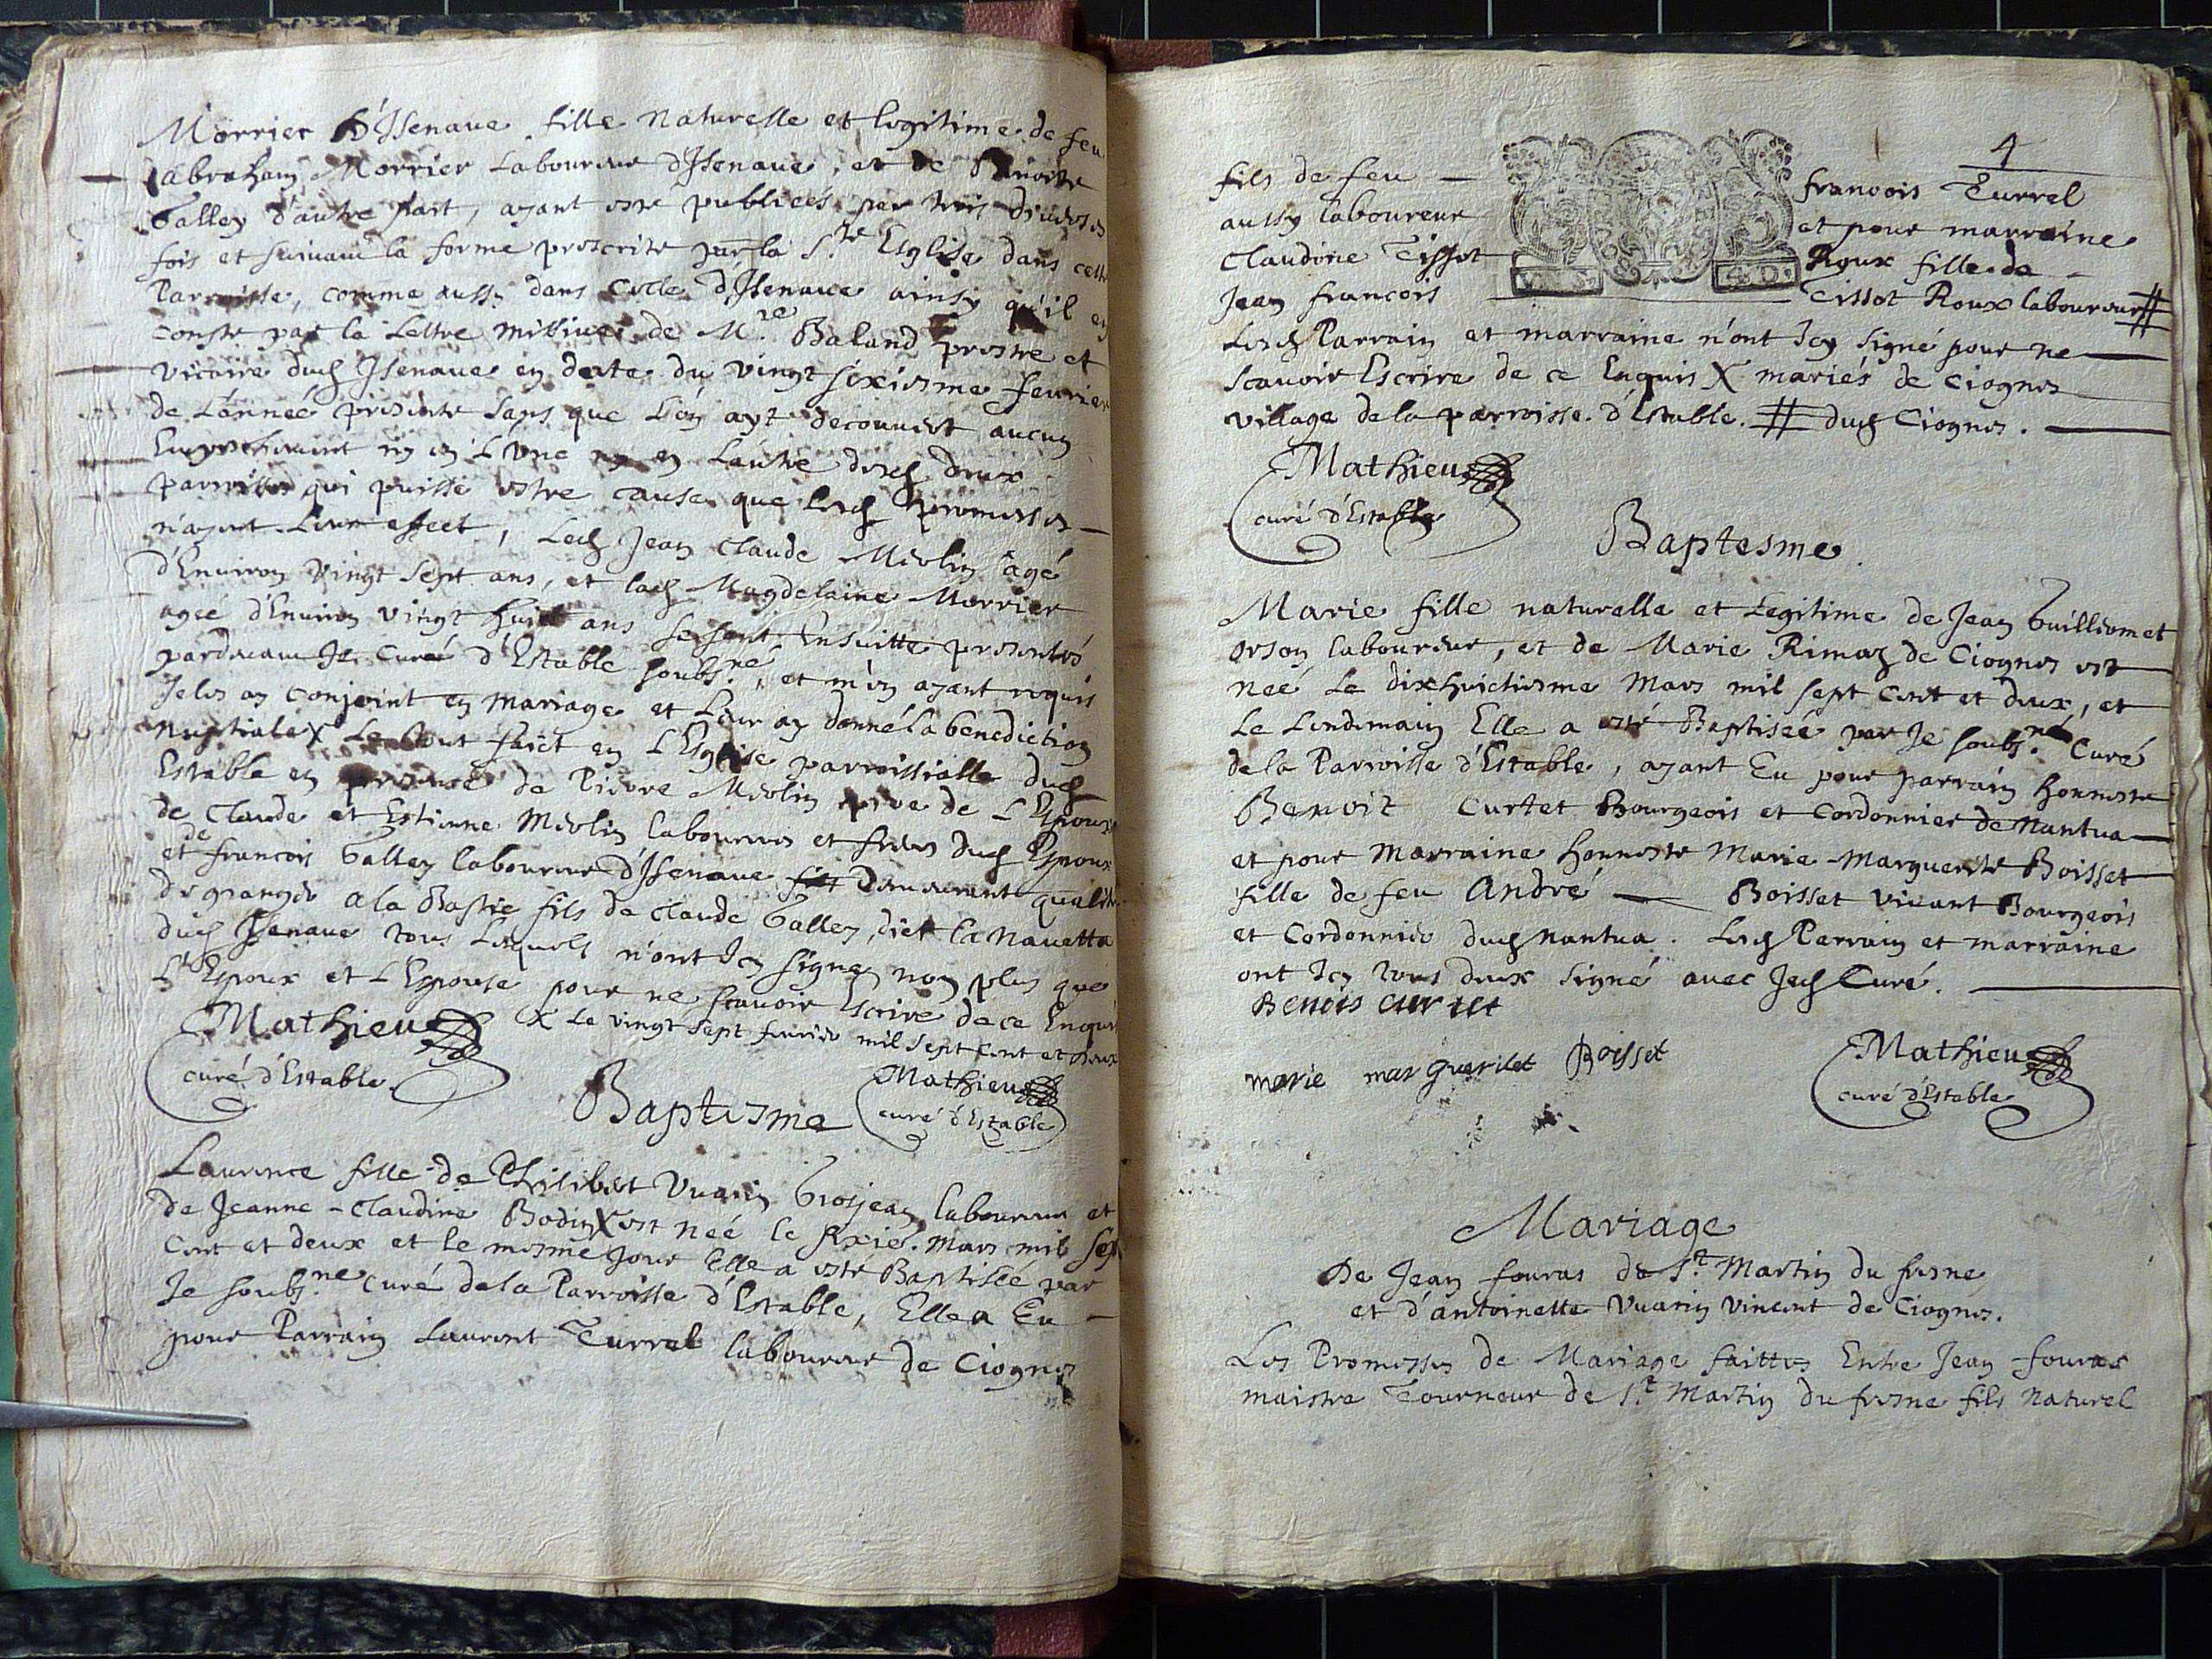 Morrier d'Isenave fille naturelle et legitime de feu
abraham Morrier Laboureur d'Isenave, et de Benoite
Galley d'autre part, ayant esté publiées par trois diverses
fois et suivant la forme prescrite par la S.te Esglise dans cette
Parroisse, comme aussy dans celle d'Isenave ainsy qu'il en
conste par la Lettre missive de M.re Baland prestre et
vicaire dud Isenave en datte du vingt sixiesme fevrier
de L'année presente sans que L'on ayt decouvert aucun
Empeschement ny en L'une ny en L'autre desd deux
parroisses qui puisse estre cause que Lesd promesses
n'ayent Leur effect, Led Jean Claude Merlin agé
d'Environ vingt sept ans, et lad Magdelaine Morrier
agée d'Environ vingt huict ans se sont Ensuitte presentés
pardevant Je Curé d'Estable soubs.né, et m'en ayant requis
Je les ay conjoint en mariage et Leur ay donné la benediction
nuptiale X Le tout faict en L'Esglise parroissialle dud
Estable en presence de Pierre Merlin pere de L'Espoux
de Claude et Estienne Merlin laboureurs et freres dud Espoux
et de francois Galley laboureur d'Isenave demeurant qualité
de granger a la Bastie fils de Claude Galley, dict la navetta
dud Isenave tous Lesquels n'ont Icy signé non plus que
L'Espoux et L'Espouse pour ne scavoir Escrire de ce Enquis
X Le vingt sept fevrier mil sept cent et deux
Mathieu
curé d'Estable
Mathieu
curé d'Estable
Baptesme
Laurence fille de Philibert Vuarin Grosjean laboureur et
de Jeanne-Claudine Bodin X est neé le sixie. Mars mil sept
cent et deux et le mesme jour Elle a esté Baptisée par
Je soubs.né Curé de la Parroisse d'Estable, Elle a Eu
pour Parrain Laurent Turrel laboureur de Ciognes
4
fils de feu — francois Turrel
aussy laboureur et pour marraine
Claudine Tissot Roux fille de
Jean francois — Tissot Roux laboureur #
Lesd Parrain et marraine n'ont Icy signé pour ne
scavoir Escrire de ce Enquis X mariés de Ciognes
village de la parroisse d'Estable. # dud Ciognes.
Mathieu
curé d'Estable
Baptesme
Marie fille naturelle et Legitime de Jean Guilliermet
orson laboureur, et de Marie Rimaz de Ciognes est
neé Le dixhuictiesme Mars mil sept cent et deux, et
Le Lendemain Elle a esté Baptisée par Je soubs.né Curé
de la Parroisse d'Estable, ayant Eu pour parrain honneste
Benoit Curtet Bourgeois et Cordonnier de Nantua
et pour Marraine honneste Marie-Marguerite Boisset
fille de feu André — Boisset vivant Bourgeois
et Cordonnier dud Nantua. Lesd Parrain et marraine
ont Icy tous deux signé avec Jed Curé.
Benois curtet
marie marguerilet Boisset
Mathieu
curé d'Estable
Mariage
De Jean fouras de S.t Martin du fresne
et d'antoinette Vuarin Vincent de Ciognes.
Les Promesses de Mariage faittes Entre Jean fouras
maistre Tourneur de S.t Martin du fresne fils naturel